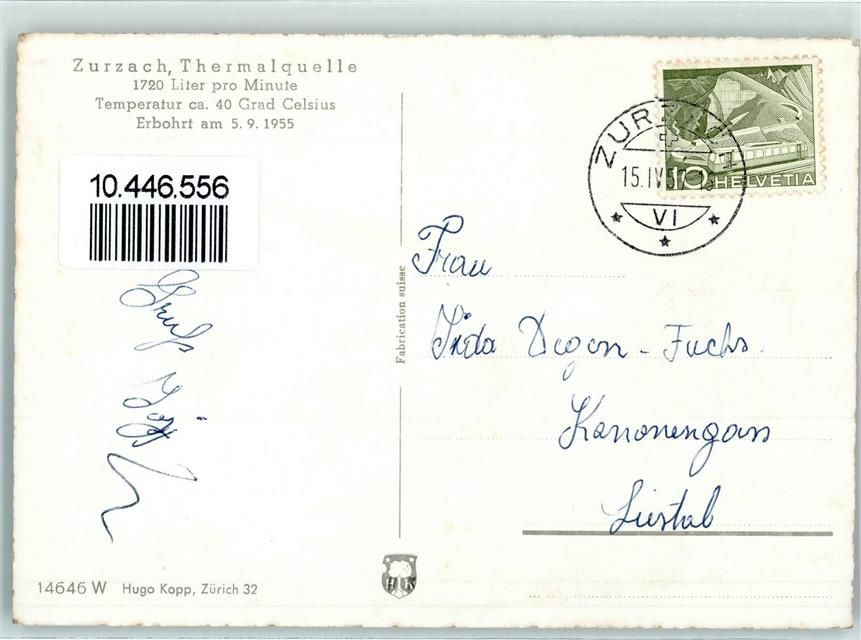 Zurzach, Thermalquelle
1720 Liter pro Minute
Temperatur ca. 40 Grad Celsius
Erbohrt am 5. 9. 1955
10.446.556
Gruss
Fabrication suisse
ZURZACH
15.IV.5
VI
10 HELVETIA
Frau
Frida Degen - Fuchs.
Kanonengass
Liestal
14646 W Hugo Kopp, Zürich 32
H K